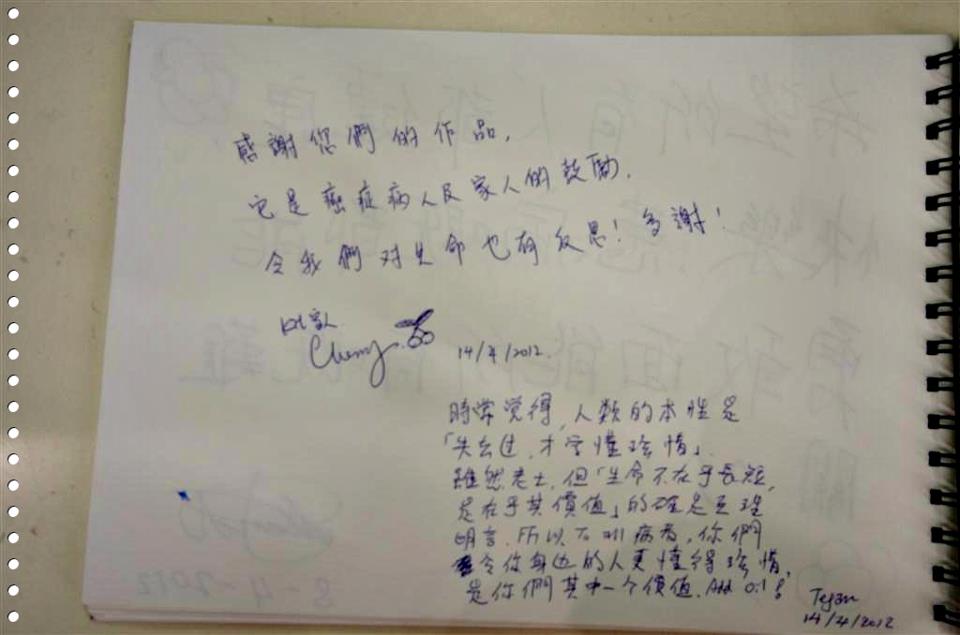 感謝您們的作品,
它是癌症病人及家人的鼓励.
令我們对生命也有反思! 多謝!
Cherry
14/4/2012.
時常觉得, 人類的本性是
「失去过, 才学懂珍惜」.
雖然老土, 但「生命不在乎長短,
是在乎其價值」的確是至理
明言. 所以 病者, 你們
令你身边的人更懂得珍惜,
是你們其中一个價值. Add oil!
14/4/2012
8-4-2012